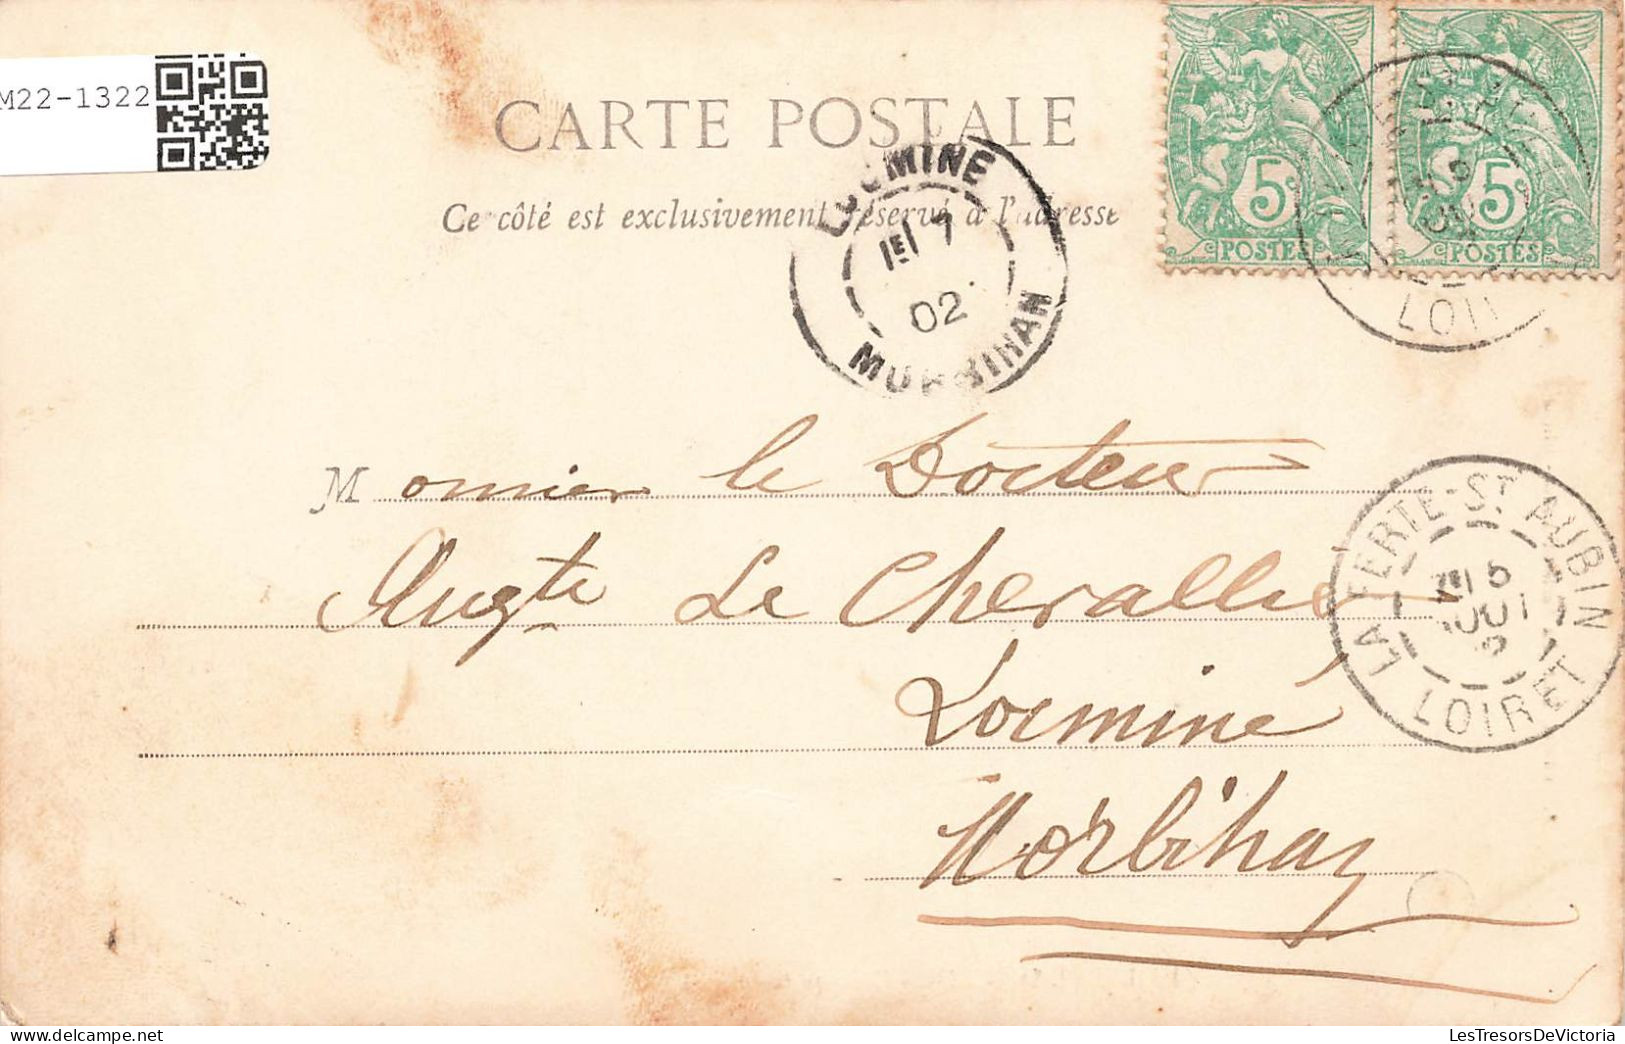 M22-1322
CARTE POSTALE
Ce côté est exclusivement réservé à l'adresse
5c
POSTES
5c
POSTES
LOIRET
LOCMINE
1E/ 7
02
MORBIHAN
Monsieur le Docteur
Augte Le Chevallier
Locminé
Morbihan
LA FERTE-ST AUBIN
2E/ 5
AOUT
02
LOIRET
LesTresorsDeVictoria